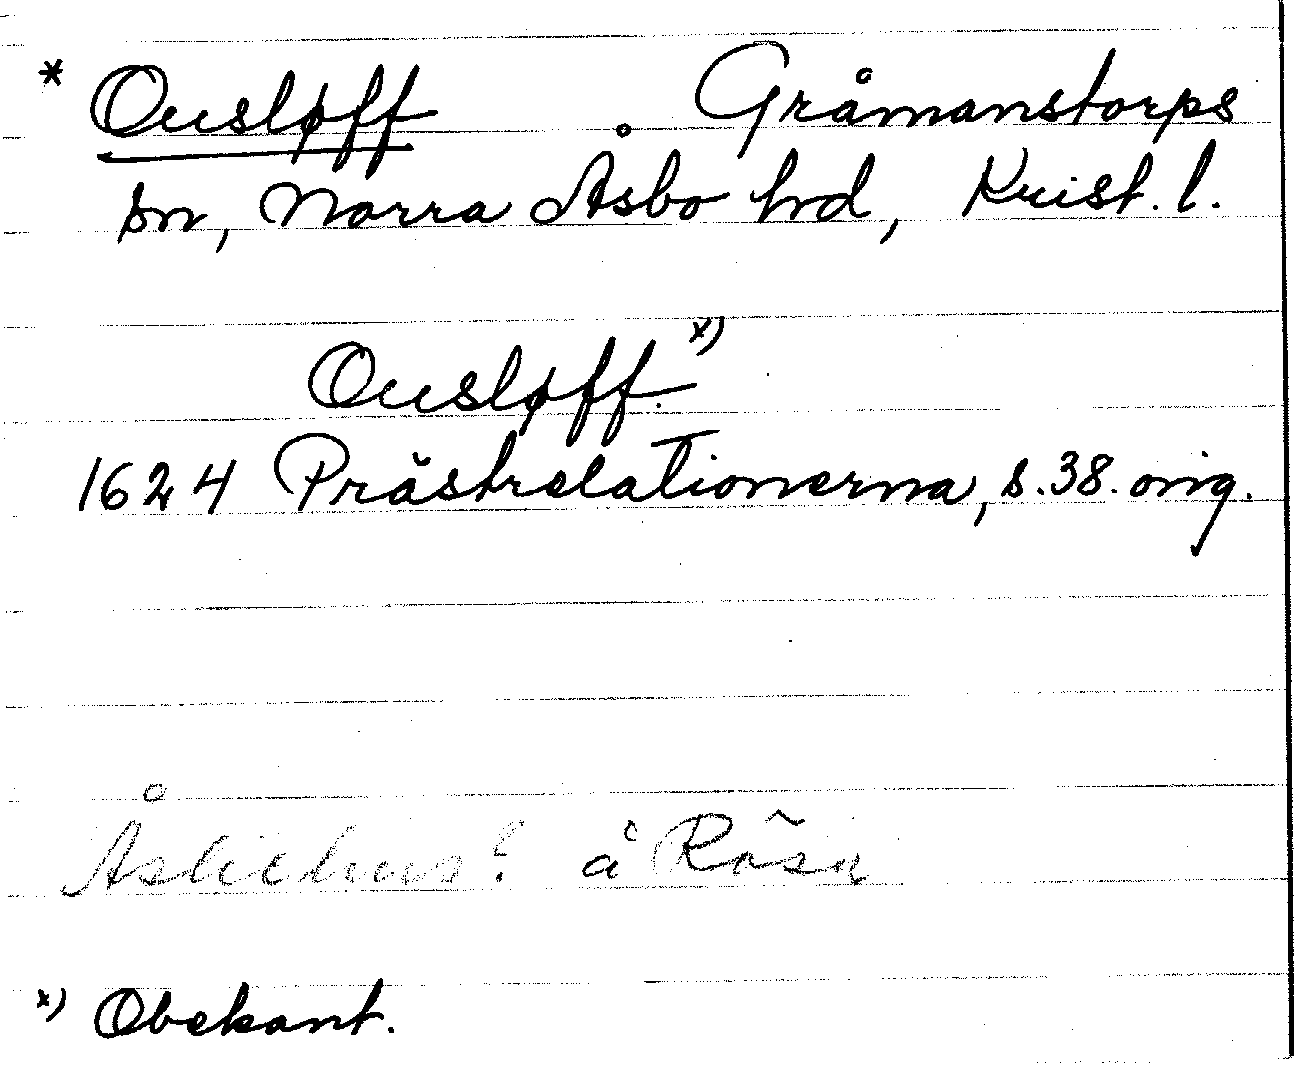 * Ousløff Gråmanstorps
sn, Norra Åsbo hd, Krist. l.
Ousløff. x)
1624 Prästrelationerna, s. 38. orig.
å Rösn
x) Obekant.